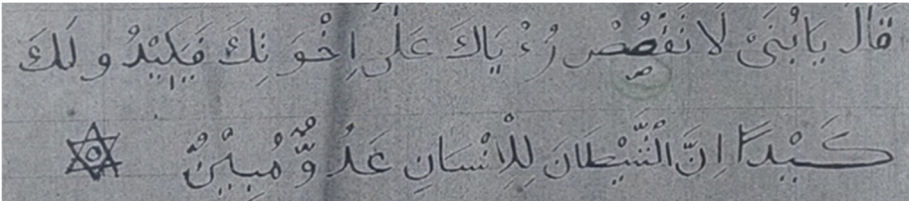 قَالَ يَابُنَىَّ لَا تَقْصُصْ رُءْيَاكَ عَلَى إِخْوَتِكَ فَيَكِيْدُ ولَكَ
كَيْدًا اِنَّ الشَّيْطَانَ لِلْاِنْسَانِ عَدُوٌّ مُبِيْنٌ